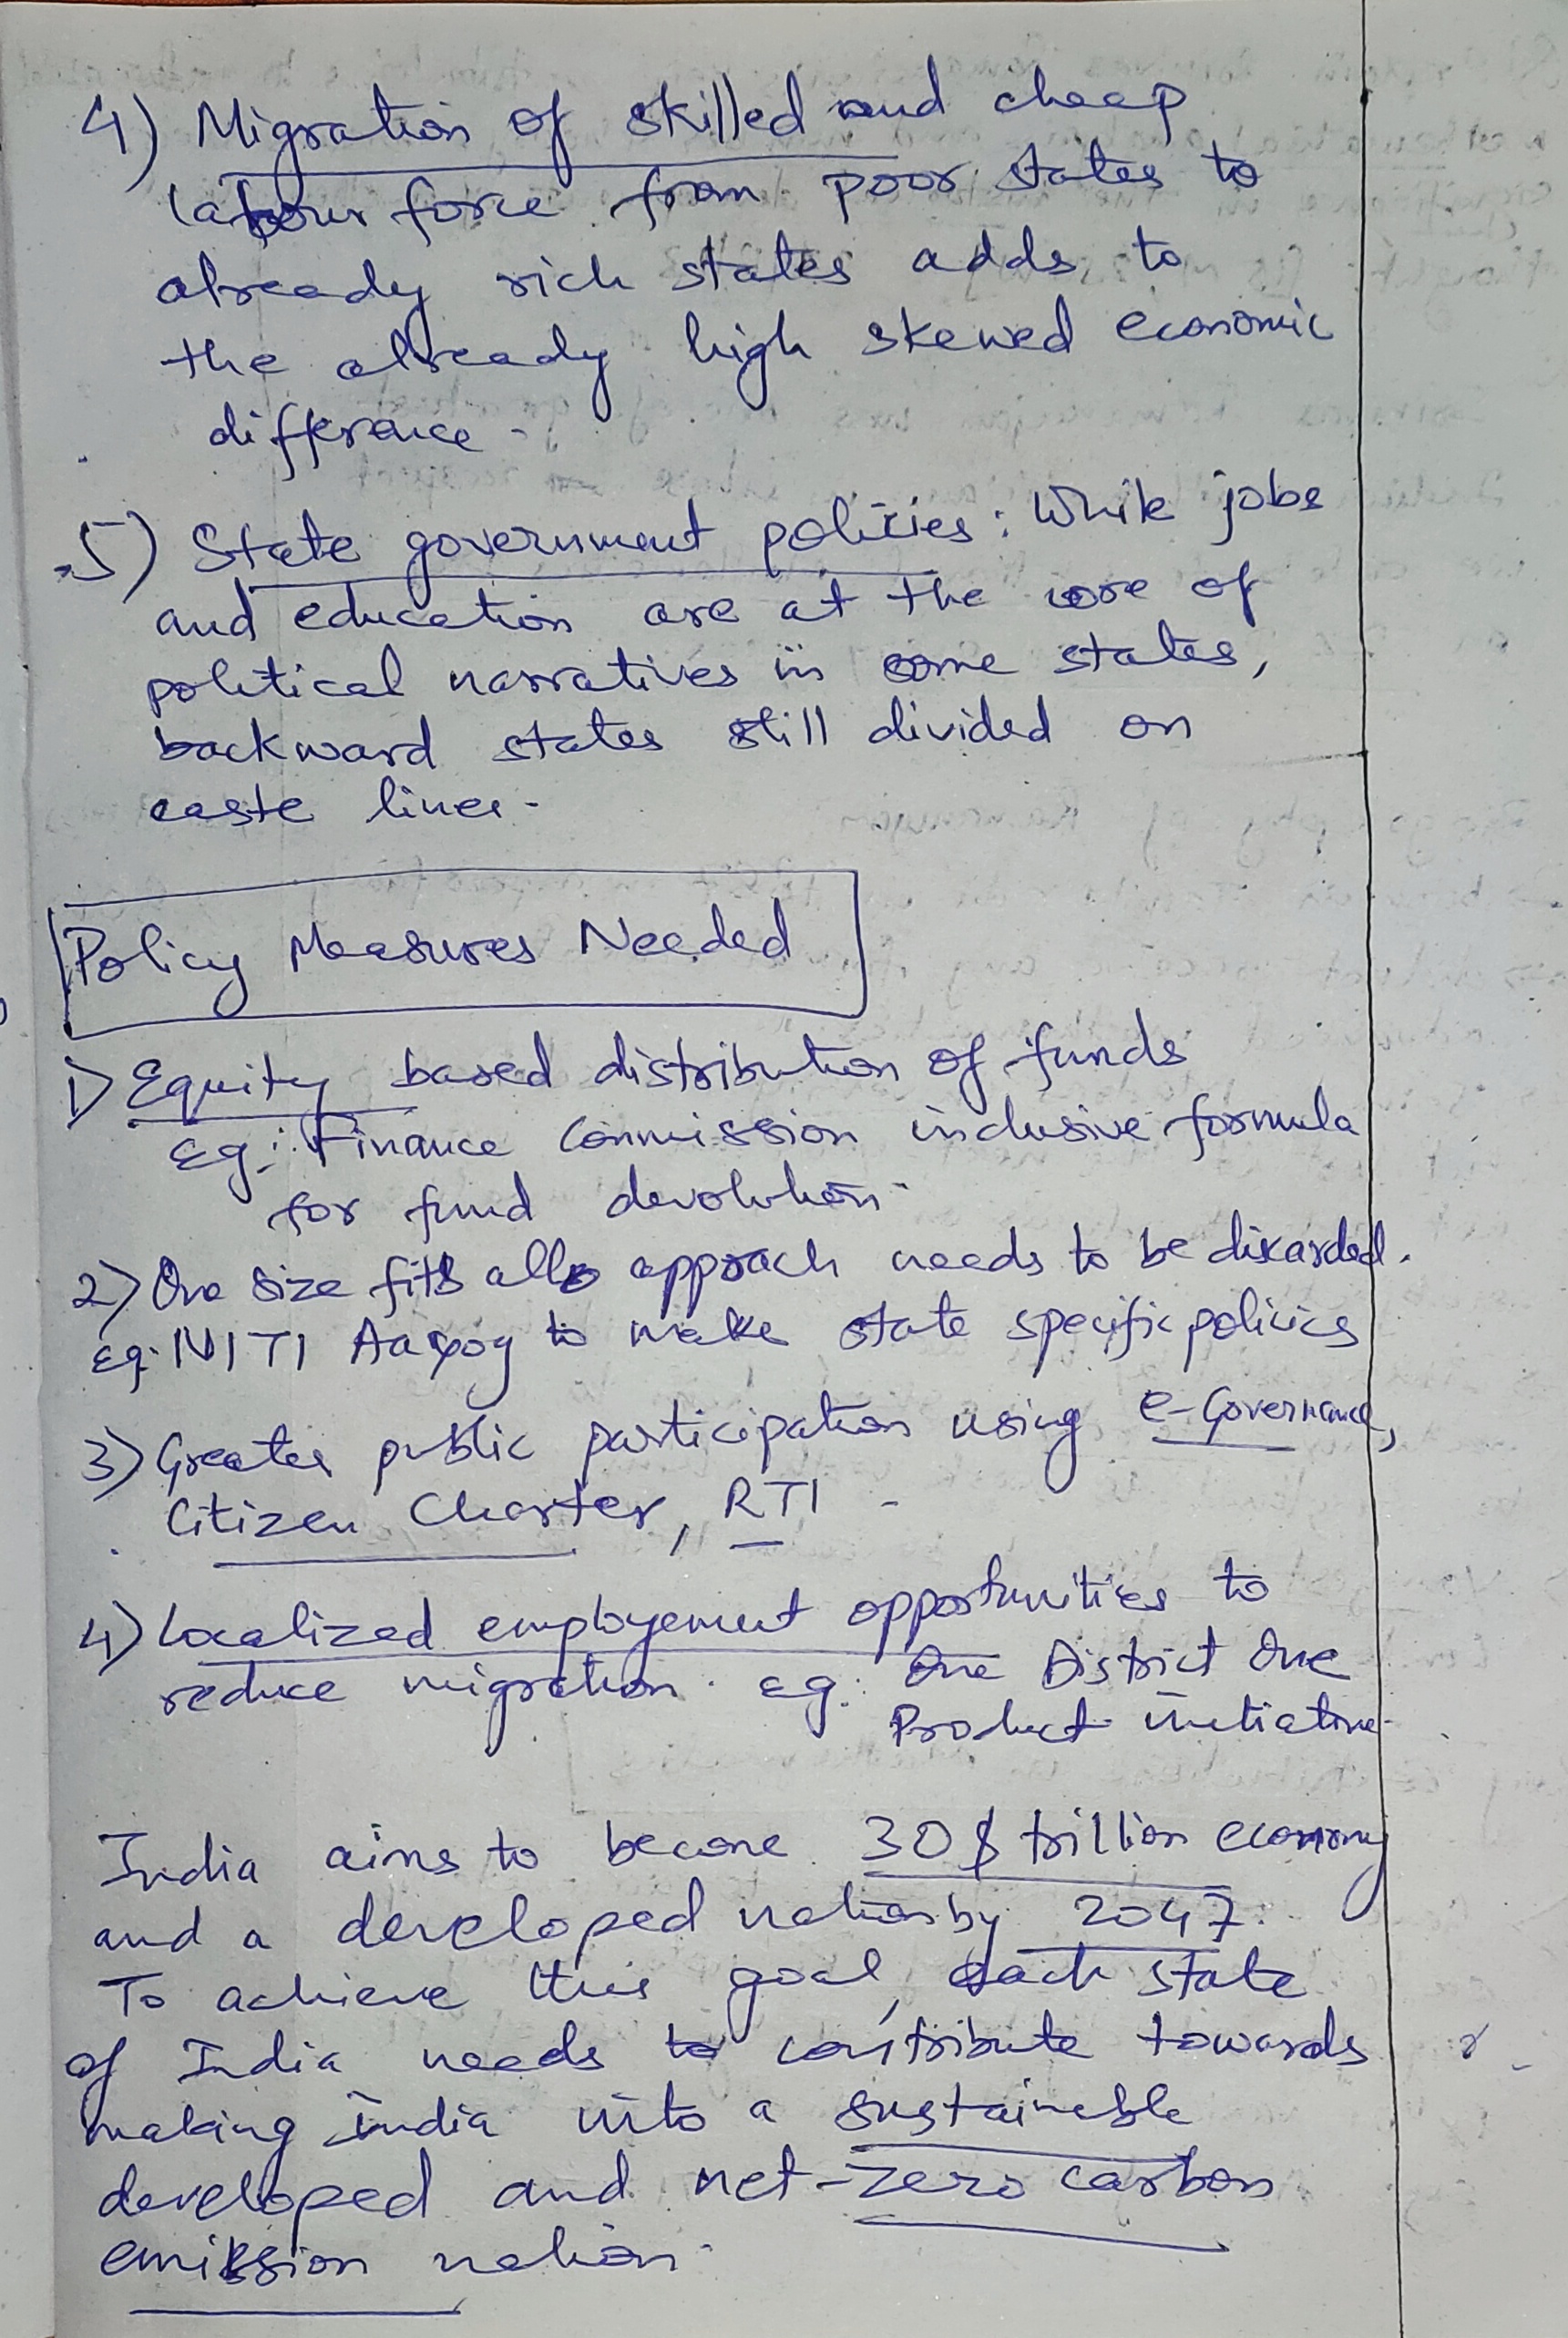 4) Migration of skilled and cheap
labour force from poor states to
already rich states adds to
the already high skewed economic
difference.
5) State government policies: While jobs
and education are at the core of
political narratives in some states,
backward states still divided on
caste lines.
Policy Measures Needed
1) Equity based distribution of funds
Eg: Finance Commission inclusive formula
for fund devolution.
2) One size fits all approach needs to be discarded.
Eg. NITI Aayog to make state specific policies
3) Greater public participation using e-Governance,
Citizen Charter, RTI.
4) Localized employement opportunities to
reduce migration. Eg: One District One
Product initiative.
India aims to become 30$ trillion economy
and a developed nation by 2047.
To achieve this goal, each state
of India needs to contribute towards
making India into a sustainable
developed and net-zero carbon
emission nation.